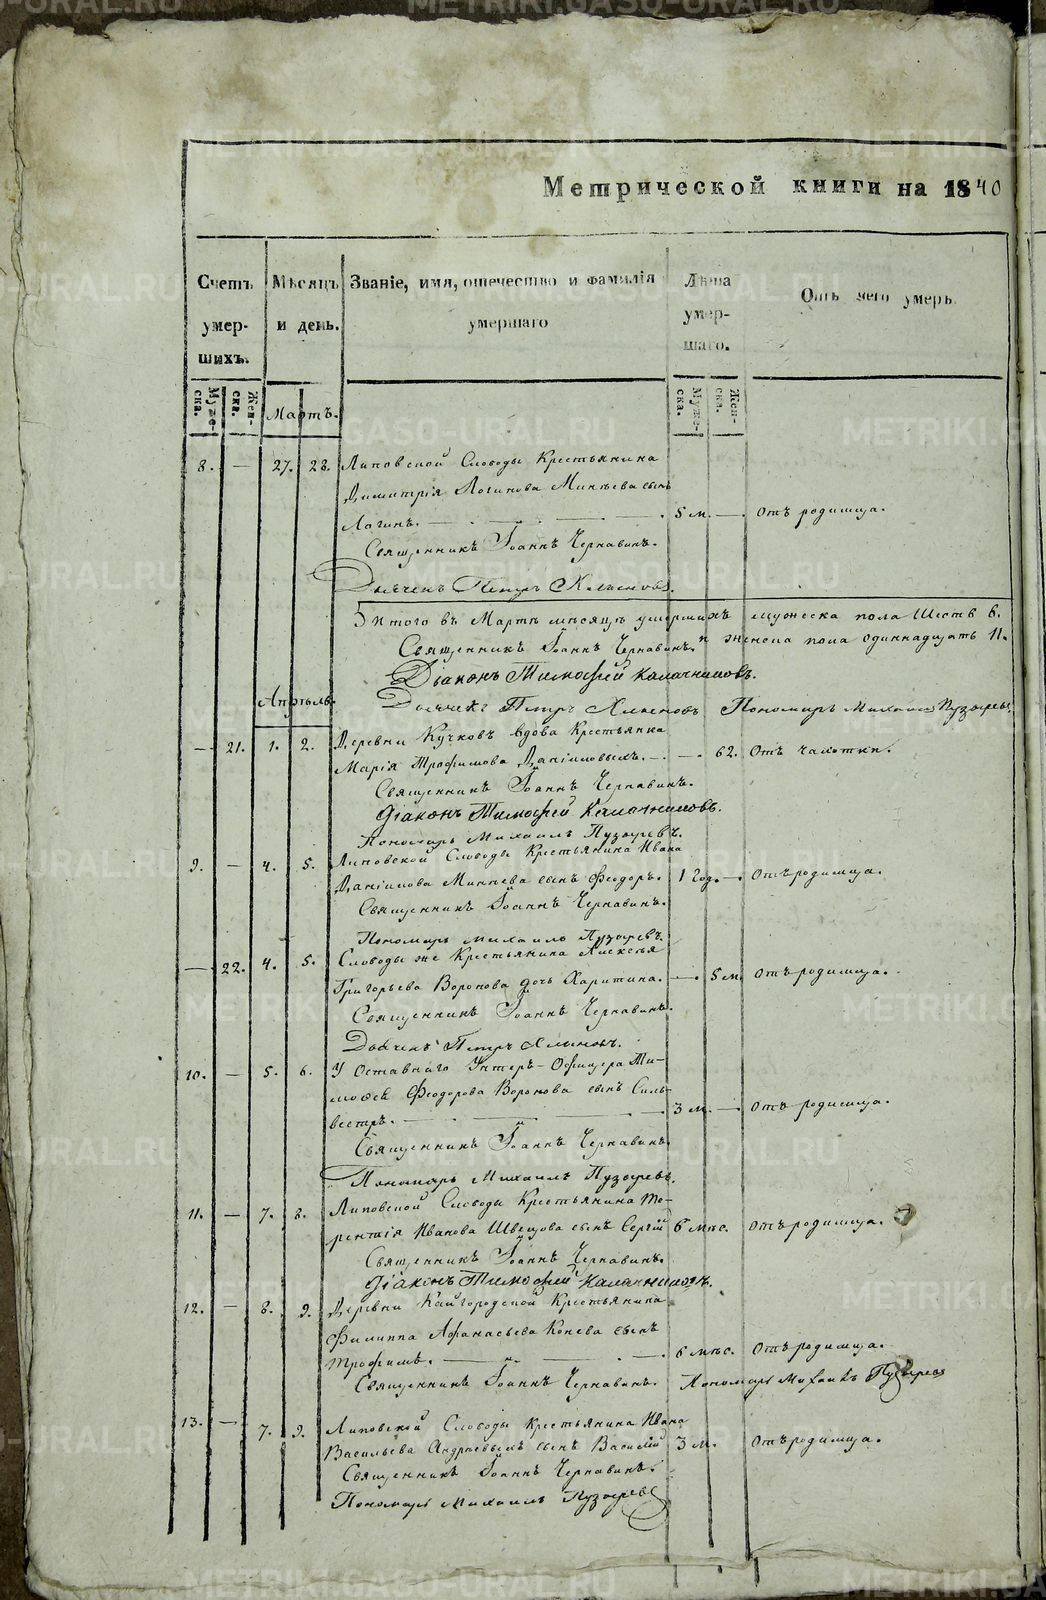 METRIKI.GASO-URAL.RU
Метрической книги на 1840
Счетъ умершихъ.
Мѣсяцъ и день.
Званіе, имя, отчество и фамилія умершаго
Лѣта умершаго.
Отъ чего умеръ.
Мужеска.
Женска.
Мартъ.
Мужеска.
Женска.
8. — 27. 28. Липовской Слободы Крестьянина
Димитрія Логинова Минѣева сынъ
Логинъ. 5 м. — Отъ родимца.
Священникъ Іоаннъ Чернавинъ.
Дьячекъ Петръ Хлыновъ.
Итого въ Мартѣ мѣсяцѣ умершихъ мужеска пола Шесть 6.
и женска пола одиннадцать 11.
Священникъ Іоаннъ Чернавинъ.
Діаконъ Тимофей Калачниковъ.
Апрѣль.
Дьячекъ Петръ Хлыновъ Пономарь Михаилъ Пузыревъ
— 21. 1. 2. Деревни Кучковъ вдова Крестьянка
Марія Трофимова Даніиловыхъ. — 62. Отъ чахотки.
Священникъ Іоаннъ Чернавинъ.
Діаконъ Тимофей Калачниковъ.
Пономарь Михаилъ Пузыревъ.
9. — 4. 5. Липовской Слободы Крестьянина Ивана
Даніилова Минѣева сынъ Феодоръ. 1 Год. — Отъ родимца.
Священникъ Іоаннъ Чернавинъ.
Пономарь Михаилъ Пузыревъ.
— 22. 4. 5. Слободы же Крестьянина Алексѣя
Григорьева Воронова дочь Харитина. — 5 м. Отъ родимца.
Священникъ Іоаннъ Чернавинъ.
Дьячекъ Петръ Хлыновъ.
10. — 5. 6. У Оставнаго Унтеръ-Офицера Ти-
моѳея Феодорова Воронова сынъ Силь-
вестръ. 3 м. — Отъ родимца.
Священникъ Іоаннъ Чернавинъ.
Пономарь Михаилъ Пузыревъ.
11. — 7. 8. Липовской Слободы Крестьянина Те-
рентія Иванова Швецова сынъ Сергій 6 мѣс. Отъ родимца.
Священникъ Іоаннъ Чернавинъ.
Діаконъ Тимофей Калачниковъ.
12. — 8. 9. Деревни Кайгородской Крестьянина
Филиппа Афанасьева Конева сынъ
Трофимъ. 6 мѣс. Отъ родимца.
Священникъ Іоаннъ Чернавинъ. Пономарь Михаилъ Пузыревъ
13. — 7. 9. Липовской Слободы Крестьянина Ивана
Васильева Андреевыхъ сынъ Василій 3 м. Отъ родимца.
Священникъ Іоаннъ Чернавинъ.
Пономарь Михаилъ Пузыревъ